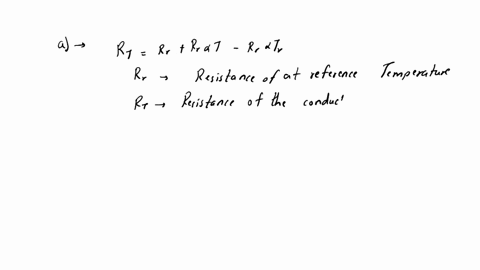 a) → R_T = R_r + R_r α T - R_r α T_r
R_r → Resistance of at reference Temperature
R_T → Resistance of the conduc